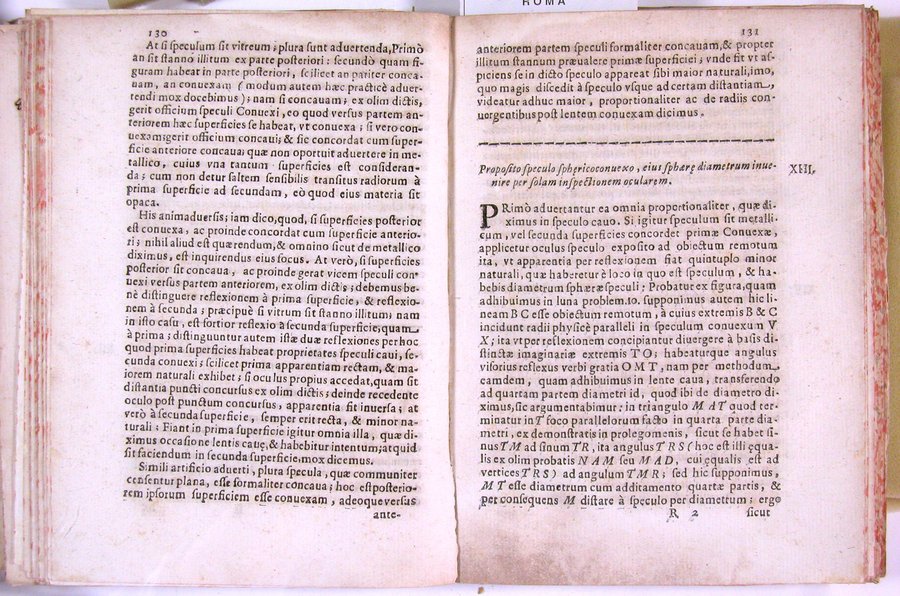 ROMA
130
At si speculum sit vitreum; plura sunt aduertenda, Primò
an sit stanno illitum ex parte posteriori: secundò quam fi-
guram habeat in parte posteriori, scilicet an pariter conca-
uam, an conuexam (modum autem hæc practicè aduer-
tendi mox docebimus); nam si concauam; ex olim dictis,
gerit officium speculi Conuexi, eo quod versus partem an-
teriorem hæc superficies se habeat, vt conuexa; si vero con-
uexam; gerit officium concaui; & sic concordat cum super-
ficie anteriore concaua; quæ non oportuit aduertere in me-
tallico, cuius vna tantum superficies est consideran-
da; cum non detur saltem sensibilis transitus radiorum à
prima superficie ad secundam, eò quod eius materia sit
opaca.
His animaduersis; iam dico, quod, si superficies posterior
est conuexa, ac proinde concordat cum superficie anterio-
ri; nihil aliud est quærendum, & omnino sicut de metallico
diximus, est inquirendus eius focus. At verò, si superficies
posterior sit concaua, ac proinde gerat vicem speculi con-
uexi versus partem anteriorem, ex olim dictis; debemus be-
nè distinguere reflexionem à prima superficie, & reflexio-
nem à secunda; præcipuè si vitrum sit stanno illitum; nam
in isto casu, est fortior reflexio à secunda superficie, quam
à prima; distinguuntur autem istæ duæ reflexiones per hoc
quod prima superficies habeat proprietates speculi caui, se-
cunda conuexi; scilicet prima apparentiam rectam, & ma-
iorem naturali exhibet; si oculus propius accedat, quam sit
distantia puncti concursus ex olim dictis; deinde recedente
oculo post punctum concursus, apparentia fit inuersa; at
verò à secunda superficie, semper erit recta, & minor na-
turali: Fiant in prima superficie igitur omnia illa, quæ di-
ximus occasione lentis cauę, & habebitur intentum; at quid
sit faciendum in secunda superficie, mox dicemus.
Simili artificio aduerti, plura specula, quæ communiter
censentur plana, esse formaliter concaua; hoc est posterio-
rem ipsorum superficiem esse conuexam, adeoque versus
ante-
131
anteriorem partem speculi formaliter concauam, & propter
illitum stannum præualere primæ superficiei; vnde fit vt as-
piciens se in dicto speculo appareat sibi maior naturali, imo,
quo magis discedit à speculo vsque ad certam distantiam,
videatur adhuc maior, proportionaliter ac de radiis con-
uergentibus post lentem conuexam dicimus.
Proposito speculo sphæricoconuexo, eius sphæræ diametrum inue-
nire per solam inspectionem ocularem.
XIII.
PRimò aduertantur ea omnia proportionaliter, quæ di-
ximus in speculo cauo. Si igitur speculum sit metalli-
cum, vel secunda superficies concordet primæ Conuexæ,
applicetur oculus speculo exposito ad obiectum remotum
ita, vt apparentia per reflexionem fiat quintuplo minor
naturali, quæ haberetur è loco in quo est speculum, & ha-
bebis diametrum sphæræ speculi; Probatur ex figura, quam
adhibuimus in luna problem. 10. supponimus autem hic li-
neam B C esse obiectum remotum, à cuius extremis B & C
incidunt radii physicè paralleli in speculum conuexum V
X; ita vt per reflexionem concipiantur diuergere à basis di-
stinctæ imaginariæ extremis T O; habeaturque angulus
visorius reflexus verbi gratia O M T, nam per methodum
eamdem, quam adhibuimus in lente caua, transferendo
ad quartam partem diametri id, quod ibi de diametro di-
ximus, sic argumentabimur: in triangulo MAT quod ter-
minatur in T foco parallelorum facto in quarta parte dia-
metri, ex demonstratis in prolegomenis, sicut se habet si-
nus TM ad sinum TR, ita angulus TRS (hoc est illi equa-
lis ex olim probatis NAM seu MAD, cui equalis est ad
vertices TRS) ad angulum TMR; sed hic supponimus,
MT esse diametrum cum additamento quartæ partis, &
per consequens M distare à speculo per diametrum; ergo
R 2
sicut